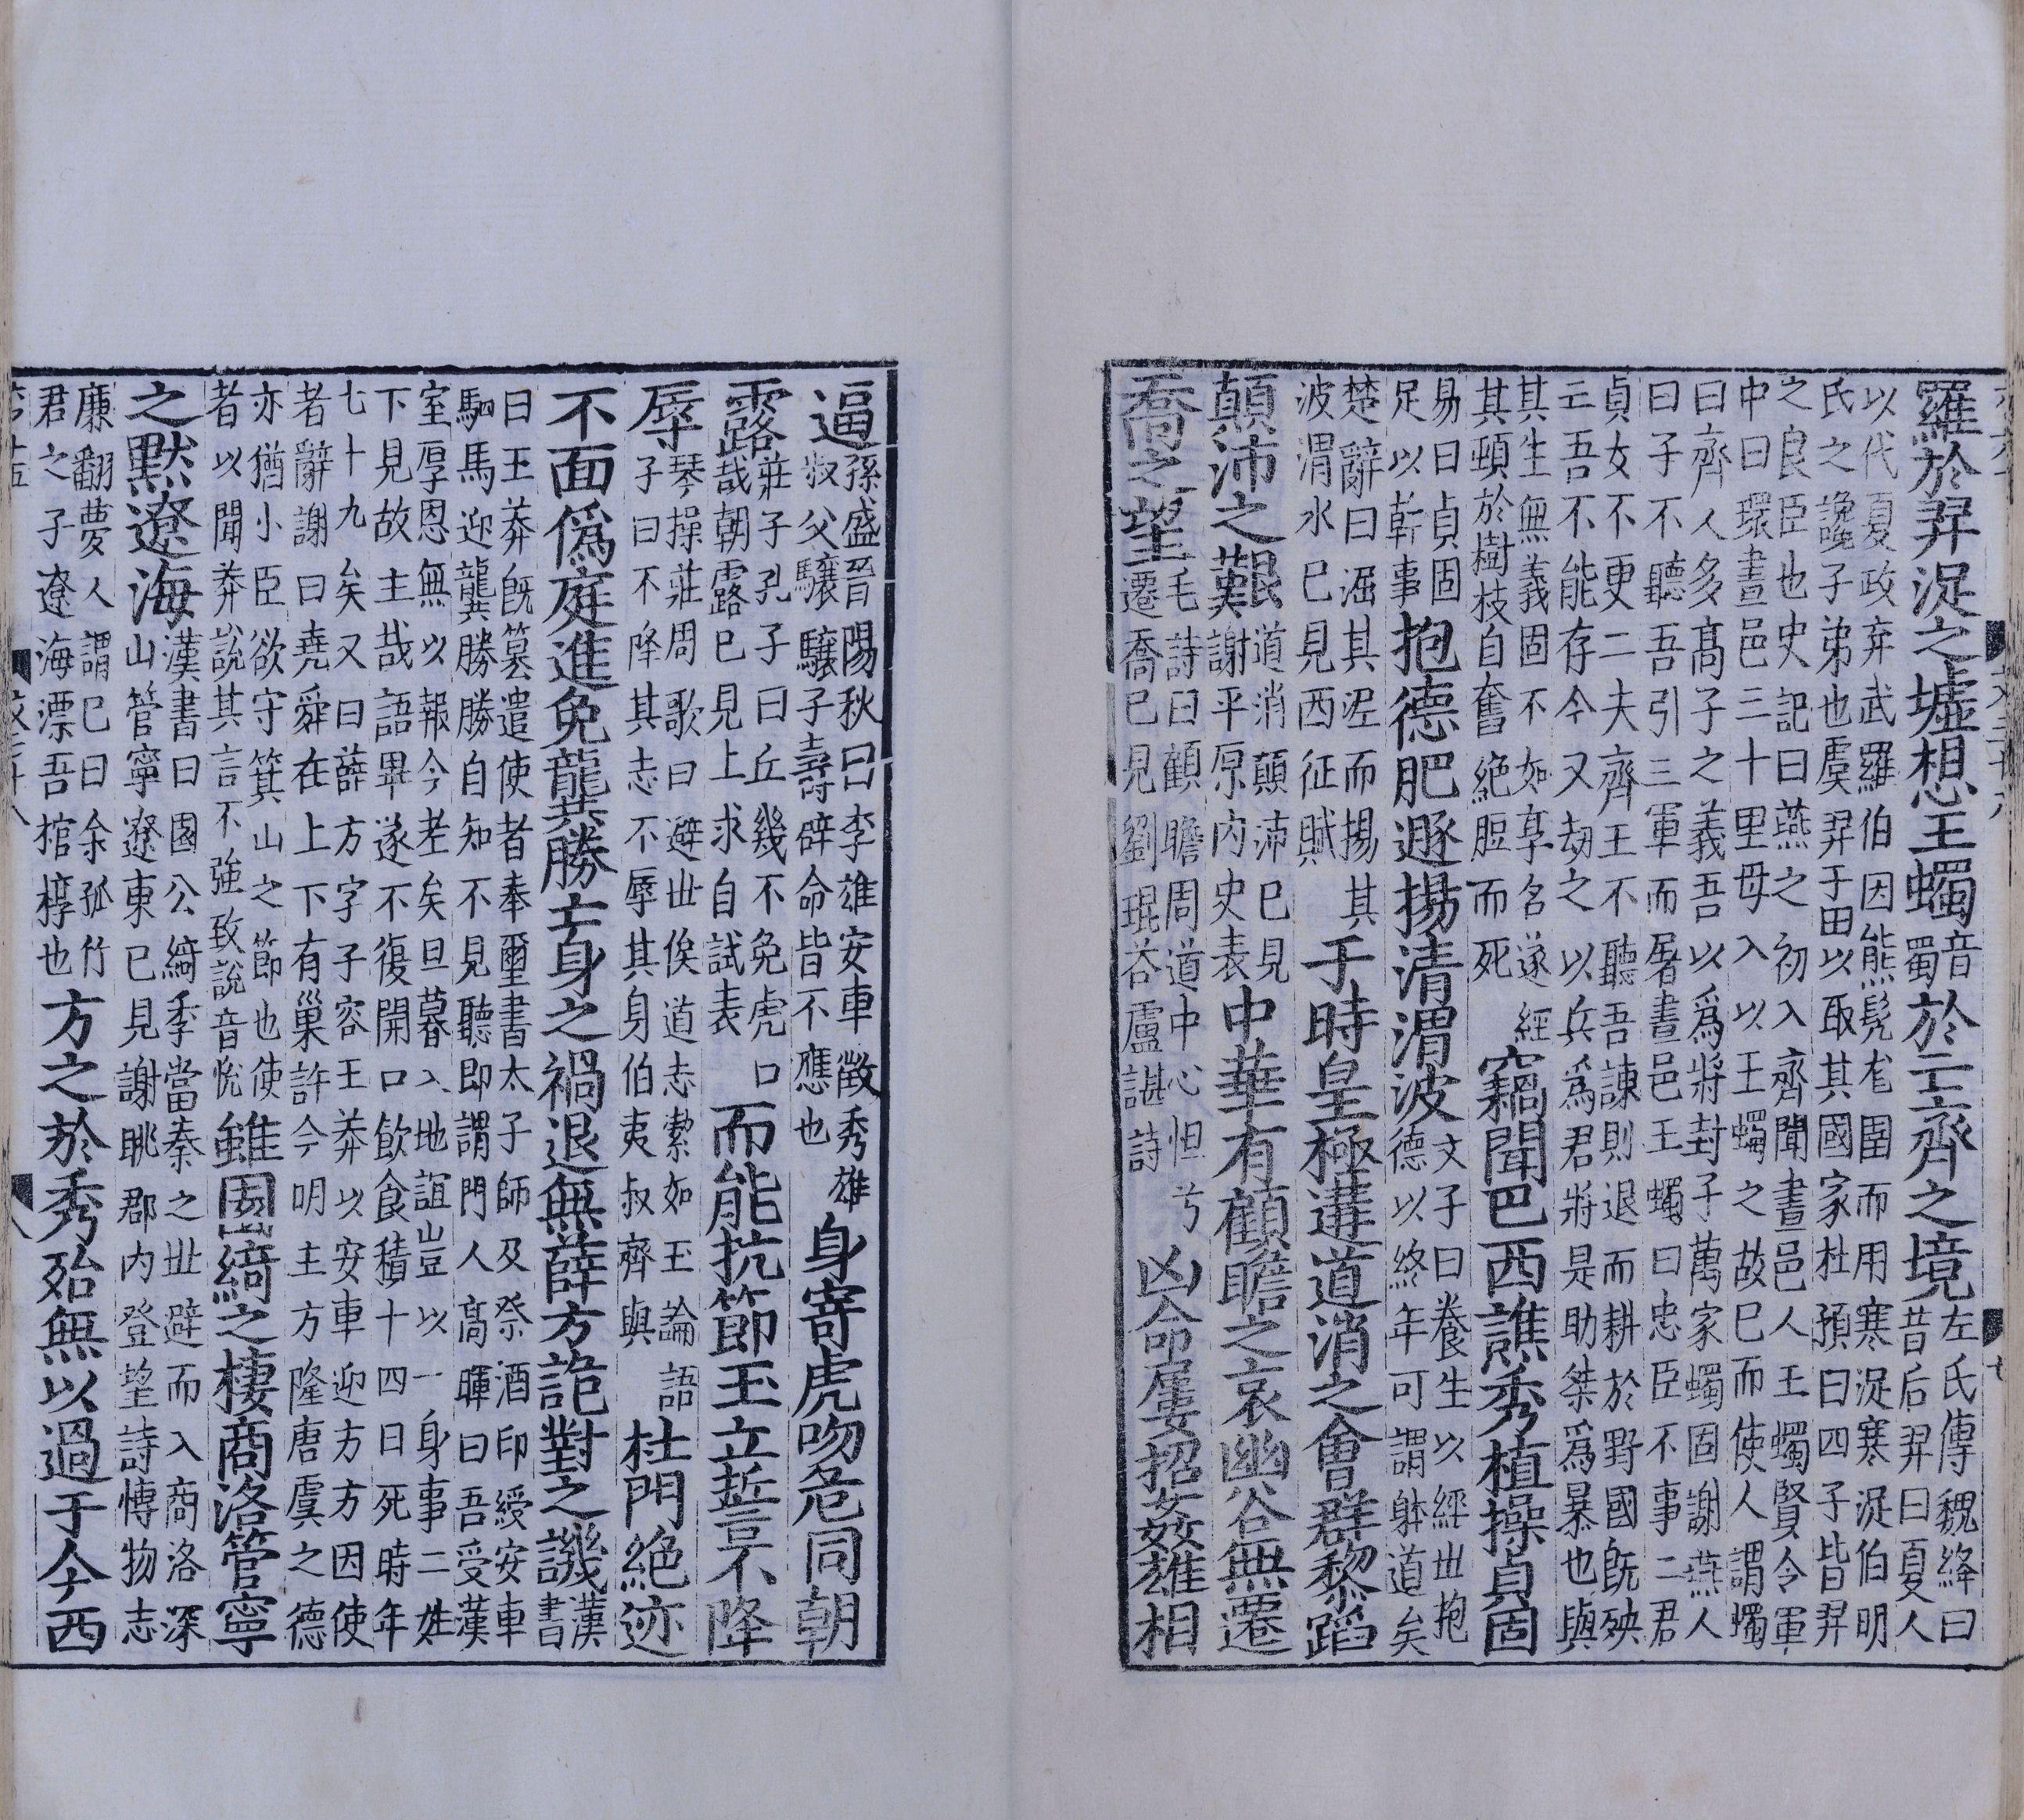 羅於羿浞之墟想王蠋音蜀於亡齊之境左氏傳魏絳曰昔后羿曰夏人
以代夏政弃武羅伯因熊髡尨圉而用寒浞寒浞伯明
氏之讒子弟也虞羿于田以取其國家杜預曰四子皆羿
之良臣也史記曰燕之初入齊聞晝邑人王蠋賢令軍
中曰環晝邑三十里毋入以王蠋之故已而使人謂蠋
曰齊人多高子之義吾以爲將封子萬家蠋固謝燕人
曰子不聽吾引三軍而屠晝邑王蠋曰忠臣不事二君
貞女不更二夫齊王不聽吾諫則退而耕於野國旣殃
亡吾不能存今又劫之以兵爲君將是助桀爲暴也與
其生無義固不如享名遂經
其頸於樹枝自奮絶脰而死竊聞巴西譙秀植操貞固
易曰貞固足以幹事抱德肥遯揚清渭波文子曰養生以經世抱德以終年可謂躰道矣
楚辭曰淈其泥而揚其波渭水已見西征賦于時皇極遘道消之會群黎蹈
顛沛之艱道消顛沛已見謝平原內史表中華有顧瞻之哀幽谷無遷
喬之望毛詩曰顧瞻周道中心怛兮遷喬已見劉琨荅盧諶詩凶命屢招姦雄相
逼孫盛晉陽秋曰李雄安車徵秀雄叔父驤驤子壽辟命皆不應也身寄虎吻危同朝
露莊子孔子曰丘幾不免虎口哉朝露已見上求自試表而能抗節玉立誓不降
辱琴操莊周歌曰避世俟道志絜如玉論語子曰不降其志不辱其身伯夷叔齊與杜門絶迹
不面僞庭進免龔勝亡身之禍退無薛方詭對之譏漢書
曰王莽旣簒遣使者奉璽書太子師友祭酒印綬安車
駟馬迎龔勝勝自知不見聽即謂門人高暉曰吾受漢
室厚恩無以報今老矣旦暮入地誼豈以一身事二姓
下見故主哉語畢遂不復開口飲食積十四日死時年
七十九矣又曰薛方字子容王莽以安車迎方方因使
者辭謝曰堯舜在上下有巢許今明主方隆唐虞之德
亦猶小臣欲守箕山之節也使
者以聞莽說其言不強致說音悅雖園綺之棲商洛管寧
之默遼海漢書曰園公綺季當秦之世避而入商洛深山管寧遼東已見謝眺郡內登望詩博物志
廉翻夢人謂已曰余孤竹
君之子遼海漂吾棺椁也方之於秀殆無以過于今西